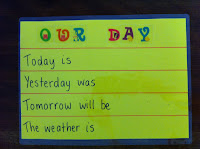 OUR DAY
Today is
Yesterday was
Tomorrow will be
The weather is